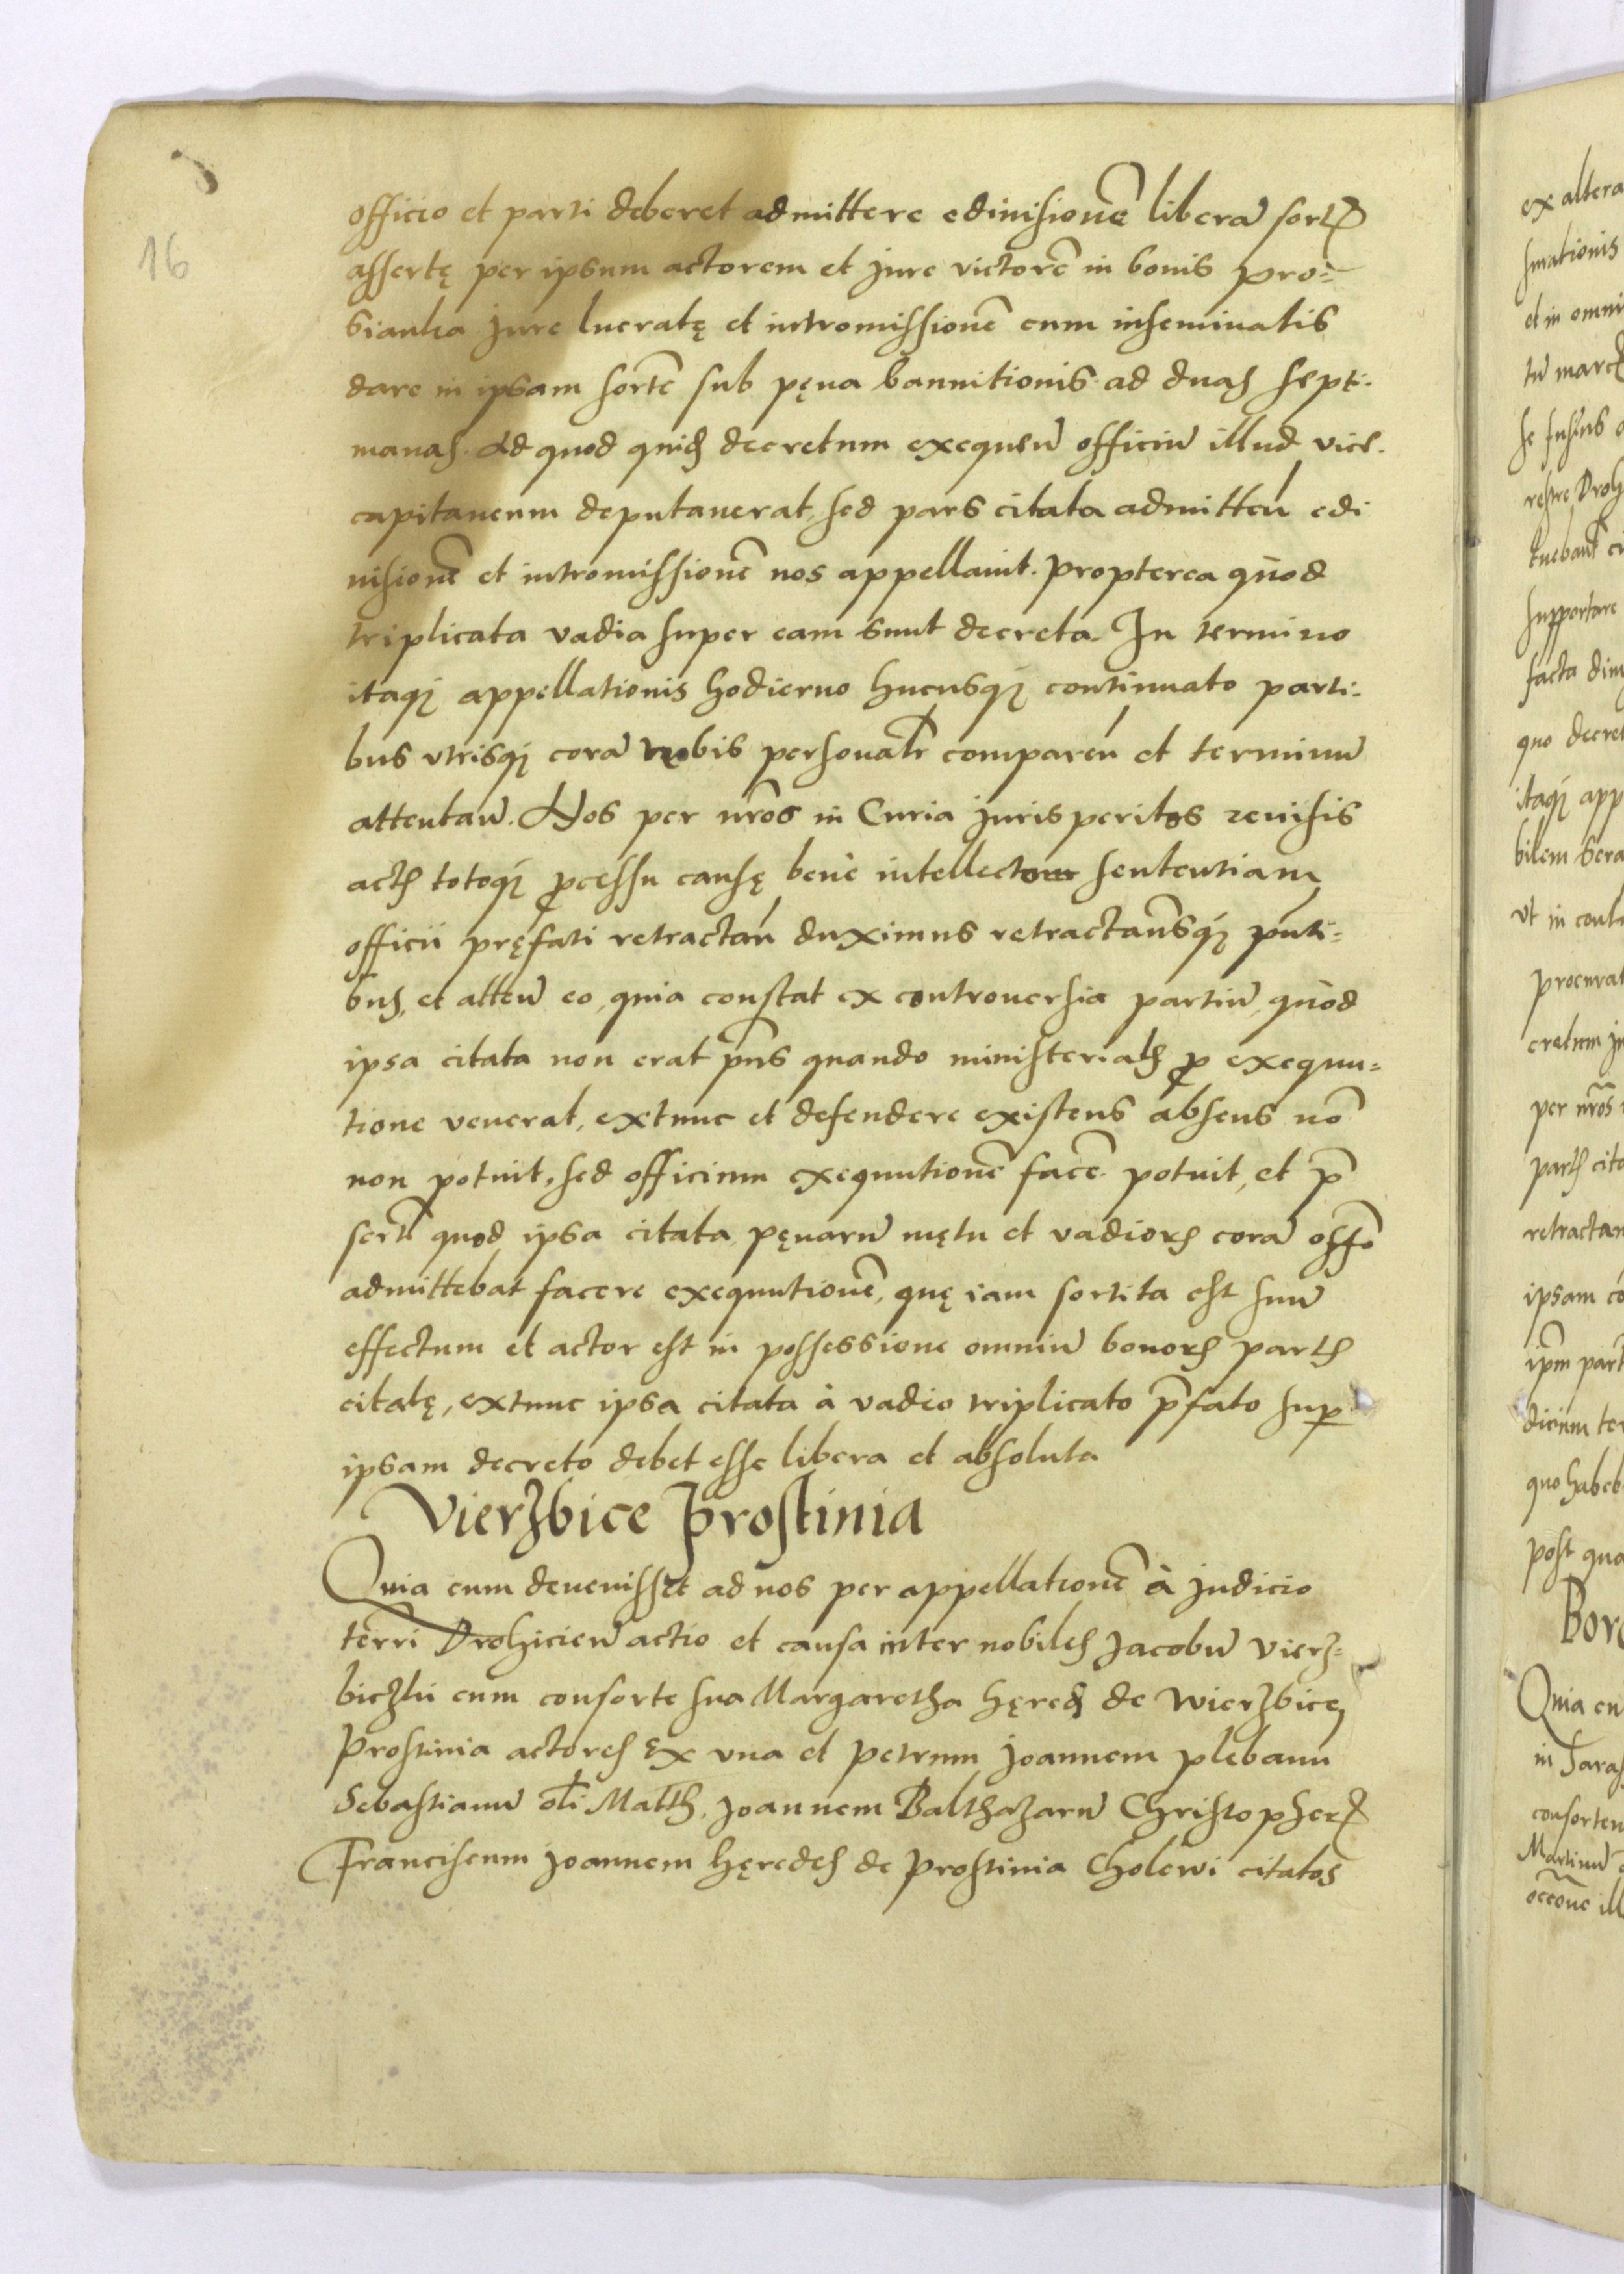 16
officio et parti deberet admittere edivisionē liberā sortꝭ
assertę per ipsum actorem et jure victorē in bonis pro=
bianka jure lucratę et intromissionē cum inseminatis
dare in ipsam sortē sub pęna bannitionis ad duas septi-
manas. Ad quod quidē decretum exequeñ officiū illud vice-
capitaneum deputaverat, sed pars citata admitteñ edi
visionē et intromissionē nos appellavit. propterea quòd
triplicata vadia super eam sunt decreta. In termino
itaqꝫ appellationis hodierno hucusqꝫ continuato parti=
bus vtrisqꝫ corā nobis personalr̄ compareñ et terminū
attentañ. Nos per nr̄os in Curia jurisperitos revisis
actis totoqꝫ ꝓcessu causę benè intellecto sententiam
officii pręfati retractañ duximus retractamꝰqꝫ pn̄ti=
bus, et atteñ eo, quia constat ex controversia partiū, quòd
ipsa citata non erat pn̄s quando ministerialis ꝓ exequu=
tione venerat, extunc et defendere existens absens nō
non potuit, sed officium exequutionē facē potuit, et p̄
sertī quod ipsa citata pęnarū mętu et vadioꝝ corā offō
admittebat facere exequutionē, quę iam sortita est suū
effectum et actor est in possessione omniū bonoꝝ partis
citatę, extunc ipsa citata à vadio triplicato p̄fato suꝑ
ipsam decreto debet esse libera et absoluta
Vierzbice Prostinia
Quia cum devenisset ad nos per appellationē à judicio
terrī Drohicieñ actio et causa inter nobiles Jacobū Vierz=
biczki cum consorte sua Margaretha hęredes de Wierzbice
Prostinia actores ex vna et petrum Joannem plebanū
Sebastianū oli Matth. Joannem Balthazarū Christopherꝭ
Franciscum Joannem hęredes de Prostinia Cholewi citatos
ex altera
et in omni
facta
quo decret
itaqꝫ app
procurat
per nr̄os
retractan
ipsam
post qua
Quia cu
consorten